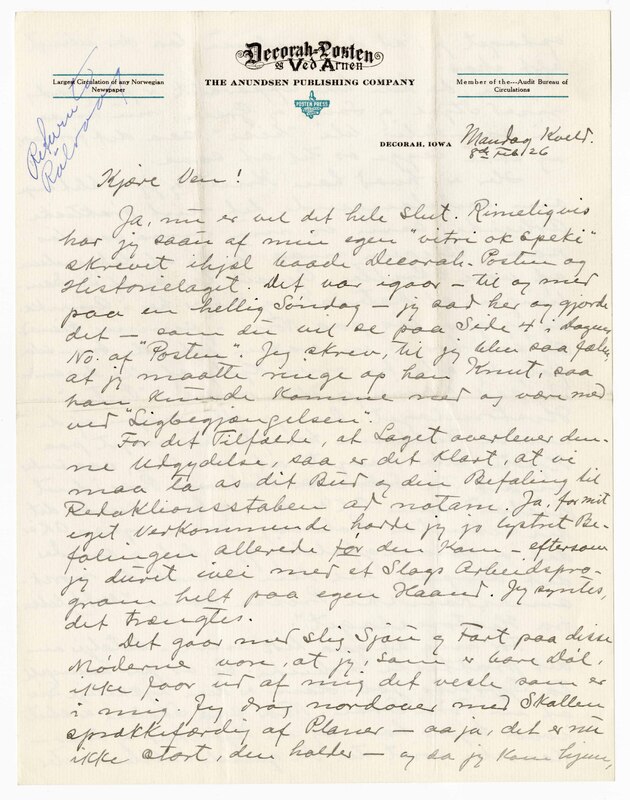 Decorah-Posten
& Ved Arnen
THE ANUNDSEN PUBLISHING COMPANY
Largest Circulation of any Norwegian
Newspaper
Member of the---Audit Bureau of
Circulations
POSTEN PRESS
DECORAH, IOWA
Return to
Rølvaag
Mandag Kveld.
8de Feb 26
Kjære Ven!
Ja, nu er vel det hele slut. Rimeligvis
har jeg saan af min egen "vitri ok speki"
skrevet ihjæl baade Decorah-Posten og
Historielaget. Det var igaar – til og med
paa en hellig Søndag – jeg sad her og gjorde
det – som du vil se paa Side 4 i Dagens
No. af "Posten". Jeg skrev, til jeg blev saa fælen,
at jeg maatte ringe op han Knut, saa
han kunde komme ned og være med
ved "Ligbegjængelsen".
For det Tilfælde, at Laget overlever den-
ne Udgydelse, saa er det klart, at vi
maa ta os dit Bud og din Befaling til
Redaktionsstaben ad notam. Ja, for mit
eget Vedkommende havde jeg jo lystret Be-
falingen allerede før den kom – eftersom
jeg duret ivei med et Slags Arbeidspro-
gram helt paa egen Haand. Jeg syntes,
det trængtes.
Det gaar med slig Sjau og Fart paa disse
Møderne vore, at jeg, som er bare Døl,
ikke faar ud af mig det vesle som er
i mig. Jeg drog nordover med Skallen
sprækkefærdig af Planer – aaja, det er nu
ikke stort, den holder – og da jeg kom hjem,